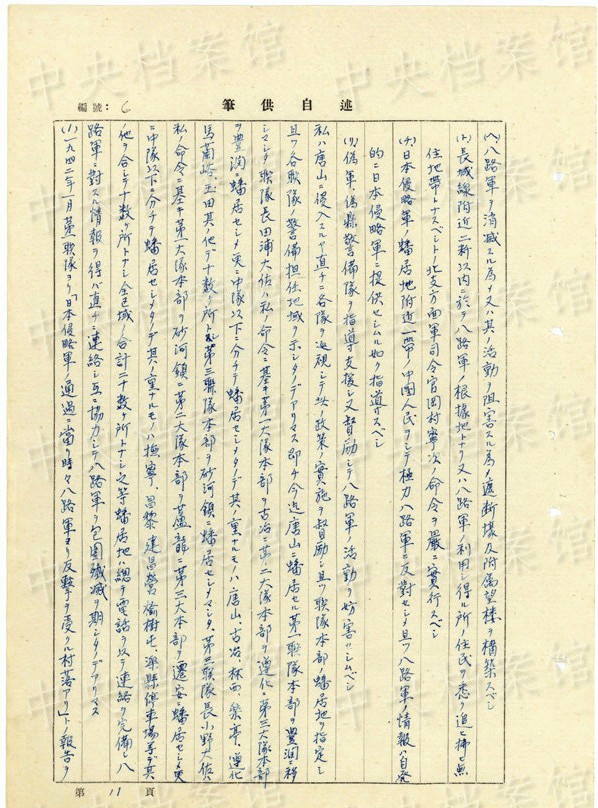 中央档案馆
編號: 6
述自供筆
(ヘ)八路軍ヲ消滅スル為メ又ハ其ノ活動ノ阻害スル為メ遮断壕及附属望楼ヲ構築スベシ
(ト)長城線附近二粁以内ニ於テ八路軍ノ根據地トナリ又ハ八路軍ノ利用シ得ル所ノ住民ヲ悉ク追ヒ拂ヒ無
住地帶トナスベシトノ北支方面軍司令官岡村寧次ノ命令ヲ嚴ニ實行スベシ
(チ)日本侵略軍ノ蟠居地附近一帶ノ中国人民ヲシテ極力八路軍ニ反對セシメ且ツ八路軍ノ情報ハ自発
的ニ日本侵略軍ニ提供セシムル如ク指導スベシ
(リ)偽軍、偽縣警備隊ヲ指導支援シ又督励シテ八路軍ノ活動ヲ妨害セシムベシ
私ハ唐山ニ侵入スルヤ直チニ各隊ヲ巡視シテ此ノ政策ノ實施ヲ督励シ且ツ聯隊本部ノ蟠居地ヲ指定シ
且ツ各聯隊ノ警備担任地域ヲ示シタノデアリマス即チ今迄唐山ニ蟠居セル第一聯隊本部ヲ豊潤ニ移
シマシタ聯隊長田浦大佐ハ私ノ命令ニ基キ第一大隊本部ヲ古冶ニ第二大隊本部ヲ遵化ニ第三大隊本部
ヲ豊潤ニ蟠居セシメ更ニ中隊以下ニ分チテ蟠居セシメタノデ其ノ重ナルモノハ唐山、古冶、林西、楽亭、遵化
馬蘭峪、玉田其ノ他デ十数ヶ所トナシ第三聯隊本部ヲ砂河鎮ニ蟠居セシメマシタ、第三聯隊長小野大佐ハ
私ノ命令ニ基キ第一大隊本部ヲ砂河鎮ニ第二大隊本部ヲ盧龍ニ第三大本部ヲ遷安ニ蟠居セシメ更
ニ中隊以下ニ分チテ蟠居セシメタノデ其ノ重ナルモノハ撫寧、昌黎、建昌營、楊樹屯、灤縣停車場等デ其
ノ他ヲ合シテ十数ヶ所トナシ全区域ノ合計二十数ヶ所トナシ之等蟠居地ハ總テ電話ヲ以テ連絡ヲ完備シ八
路軍ニ對スル情報ヲ得バ直チニ連絡シ互ニ協力シテ八路軍ヲ包圍殲滅ヲ期シタノデアリマス
(1)一九四二年一月第一聯隊ヨリ「日本侵略軍ノ通過ニ當リ時々八路軍ヨリ反撃ヲ受クル村落アリトノ報告ヲ
第 11 頁